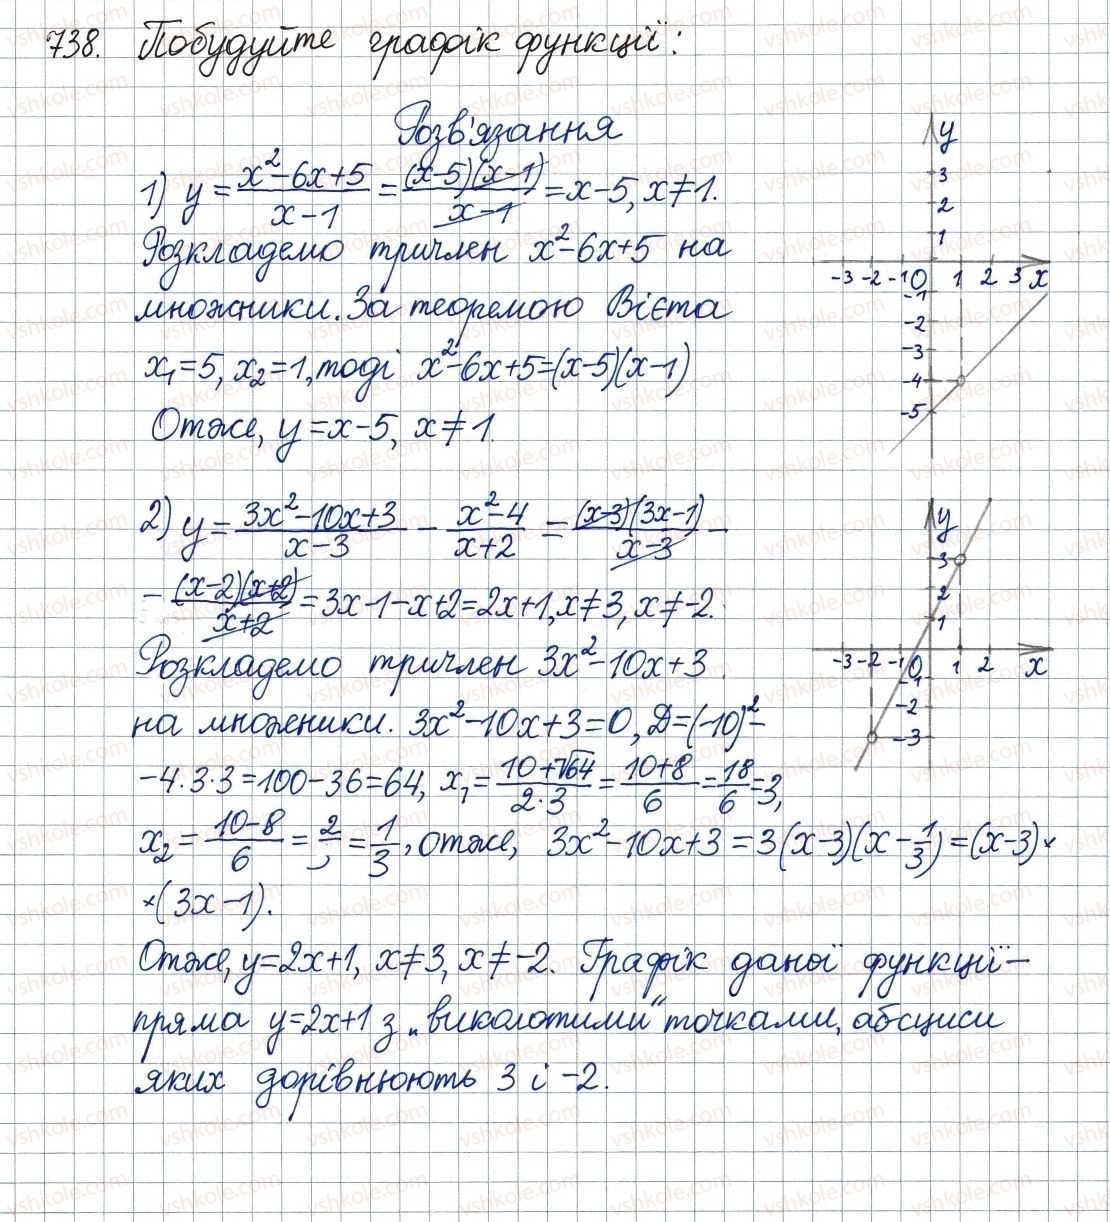 738. Побудуйте графік функції:
Розв'язання
1) y = (x²-6x+5)/(x-1) = ((x-5)(x-1))/(x-1) = x-5, x≠1.
Розкладемо тричлен x²-6x+5 на
множники. За теоремою Вієта
x₁=5, x₂=1, тоді x²-6x+5=(x-5)(x-1)
Отже, y=x-5, x≠1.
y
3
2
1
-3 -2 -1 0 1 2 3 x
-1
-2
-3
-4
-5
2) y = (3x²-10x+3)/(x-3) - (x²-4)/(x+2) = ((x-3)(3x-1))/(x-3) -
- ((x-2)(x+2))/(x+2) = 3x-1-x+2=2x+1, x≠3, x≠-2.
Розкладемо тричлен 3x²-10x+3
на множники. 3x²-10x+3=0, Д=(-10)²-
-4·3·3=100-36=64, x₁ = (10+√64)/(2·3) = (10+8)/6 = 18/6 = 3,
x₂ = (10-8)/6 = 2/ = 1/3, отже, 3x²-10x+3=3(x-3)(x-1/3)=(x-3)×
×(3x-1).
Отже, y=2x+1, x≠3, x≠-2. Графік даної функції-
пряма y=2x+1 з „виколотими" точками, абсциси
яких дорівнюють 3 і -2.
y
3
2
1
-3 -2 -1 0 1 2 x
-1
-2
-3